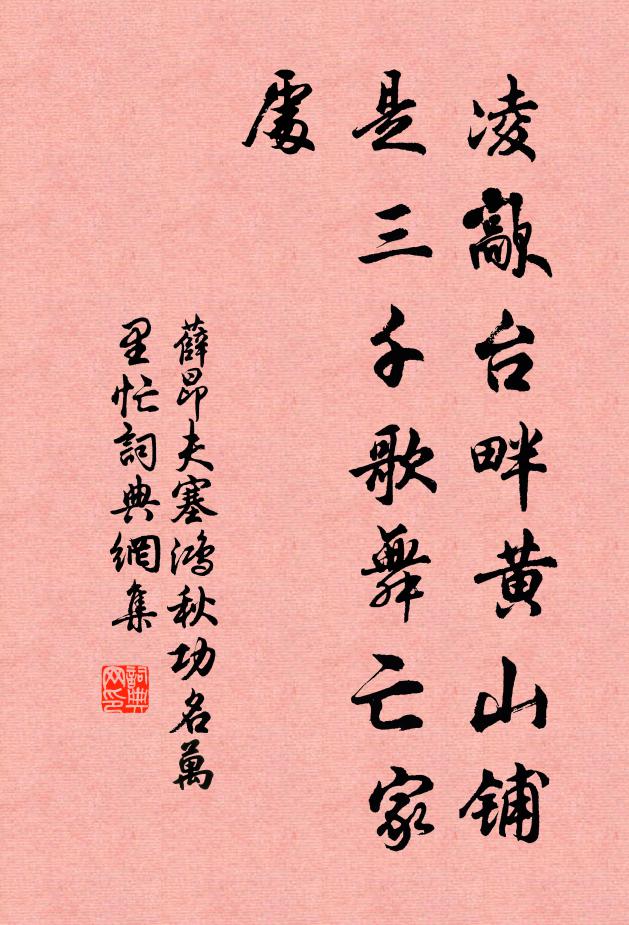 凌歊台畔黄山铺
是三千歌舞亡家
處
薛昂夫塞鴻秋功名萬
里忙詞典網集
詞典网印